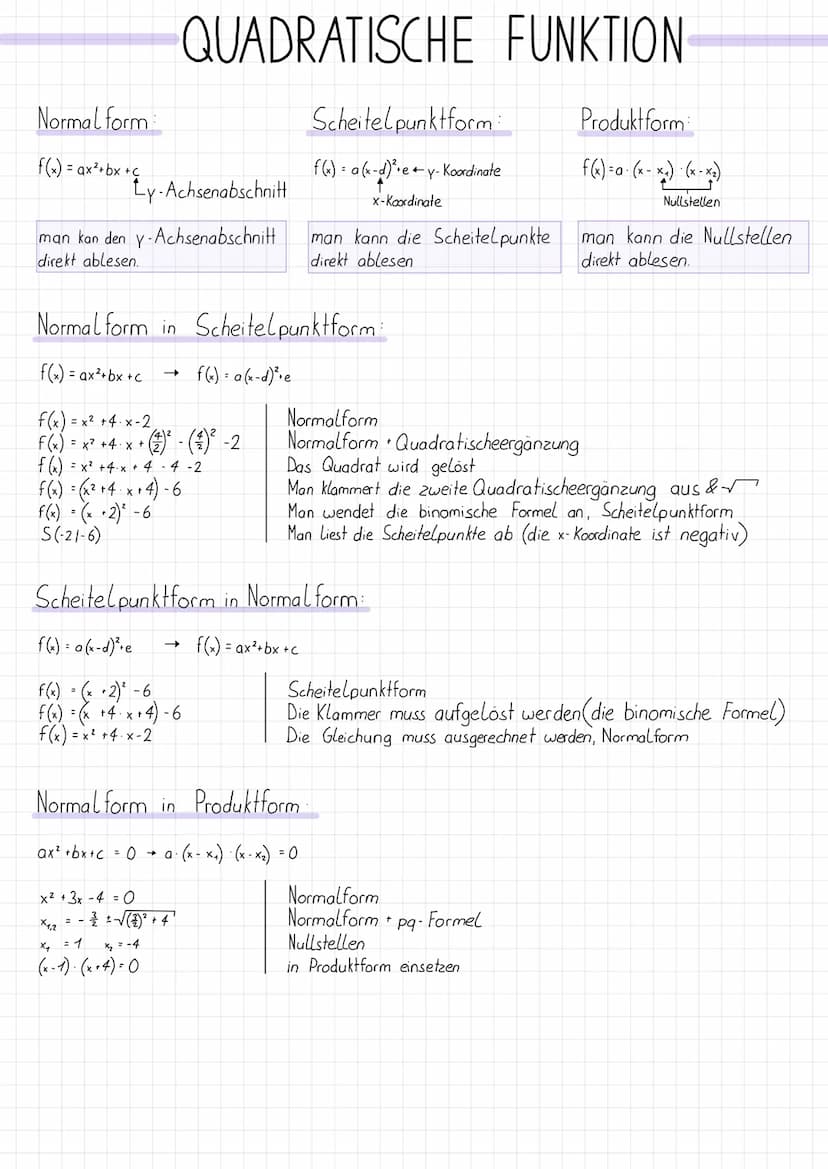 QUADRATISCHE FUNKTION
Normalform:
f(x) = ax²+bx+c
y-Achsenabschnitt
man kan den y-Achsenabschnitt
direkt ablesen.
Scheitelpunktform:
f(x) = a(x-d)²+e ← y-Koordinate
x-Koordinate
man kann die Scheitelpunkte
direkt ablesen
Produktform:
f(x)=a·(x-x₁)·(x-x₂)
Nullstellen
man kann die Nullstellen
direkt ablesen.
Normalform in Scheitelpunktform:
f(x) = ax²+bx+c → f(x) = a(x-d)²+e
f(x) = x²+4·x-2 Normalform
f(x) = x²+4·x+(4/2)²-(4/2)²-2 Normalform + Quadratischeergänzung
f(x) = x²+4·x+4-4-2 Das Quadrat wird gelöst
f(x) = (x²+4·x+4)-6 Man klammert die zweite Quadratischeergänzung aus & √
f(x) = (x+2)²-6 Man wendet die binomische Formel an, Scheitelpunktform
S(-2|-6) Man liest die Scheitelpunkte ab (die x-Koordinate ist negativ)
Scheitelpunktform in Normalform:
f(x) = a(x-d)²+e → f(x) = ax²+bx+c
f(x) = (x+2)²-6 Scheitelpunktform
f(x) = (x+4·x+4)-6 Die Klammer muss aufgelöst werden(die binomische Formel)
f(x) = x²+4·x-2 Die Gleichung muss ausgerechnet werden, Normalform
Normalform in Produktform:
ax²+bx+c = 0 → a·(x-x₁)·(x-x₂) = 0
x²+3x-4 = 0 Normalform
x₁,₂ = -3/2 ± √((3/2)²+4) Normalform + pq-Formel
x₁ = 1 x₂ = -4 Nullstellen
(x-1)·(x+4) = 0 in Produktform einsetzen